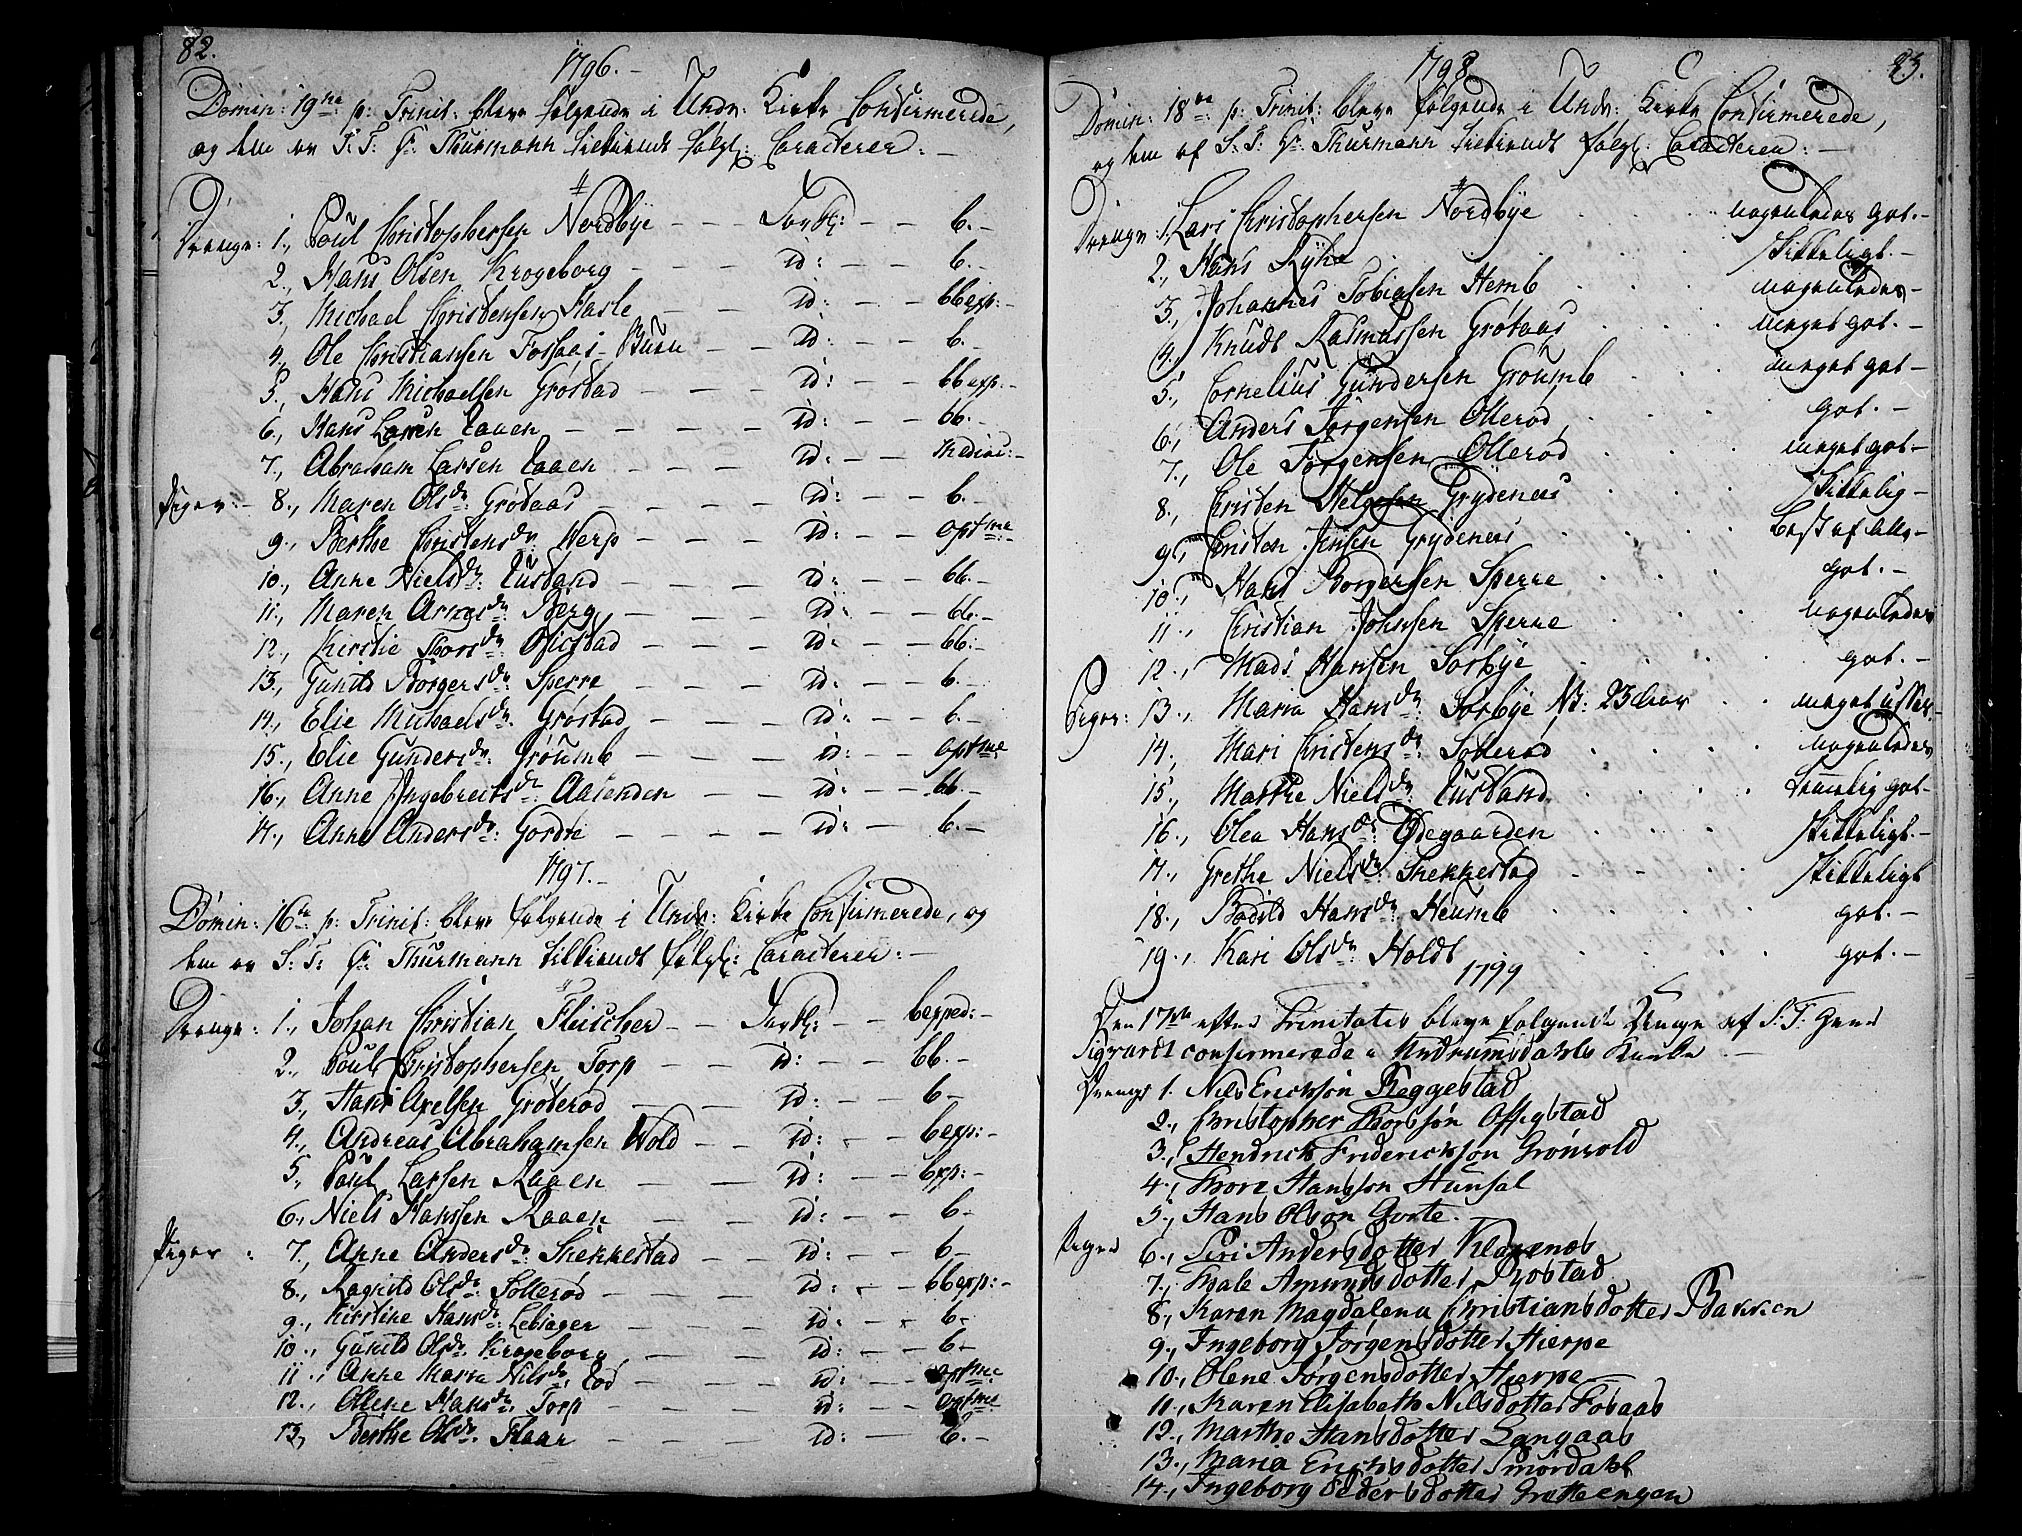 82.
1796.
Domin: 19ne p: Trinit: bleve følgende i Undr: Kirke Confirmerede,
og dem av S: T: Hr Thurmann tilkiendt følgl: Caracterer:
Drenge: 1., Poul Christophersen Nordbÿe - - b.
2., Hans Olsen Krogeborg - - - id: - - b.
3., Michael Christensen Hasle - - id: - - bbexp:
4., Ole Christiansen Fossaas-Buen - - id: - - b.
5., Hans Michaelsen Grøstad - - - id: - - bbexp:
6., Hans Larsen Raaen - - - - id: - - bb.
7., Abraham Larsen Raaen - - - id: - - medioc:
Piger: 8., Maren Olsdr: Grøtaas - - - id: - - b.
9., Berthe Christensdr: Werp - - - id: - - optme
10., Anne Nielsdr: - - - id: - - bb.
11., Maren Arnesdr: Berg - - - id: - - bb.
12., Kirstie Thorsdr: Ofigstad - - - id: - - bb:
13., Gunild Borgersdr: Sperre - - - id: - - b.
14., Elie Michaelsdr: Grøstad - - - id: - - b.
15., Elie Gundersdr: Grøumb - - - id: - - optme
16., Anne Ingebreitsdr: Aasenden - - id: - - bb.
17., Anne Andersdr: Gordte - - - - id: - b.
1797.
Domin: 16de p: Trinit: bleve følgende i Undr: Kirke Confirmerede, og
dem av S: T: Hr Thurmann tilkiendt følgl: Caracterer:
Drenge: 1., Johan Christian Fleischer - - bexped:
2., Poul Christophersen Torp - - id: - - bb.
3., Hans Axelsen Grøterød - - id: - - b
4., Andreas Abrahamsen Wold - - id: - - bexp:
5., Poul Larsen Raaen - - id: - - bexp:
6., Niels Hanssen Raaen - - id: - - b
Piger: 7., Anne Andersdr: Skekkestad - - id: - - b
8., Ragnild Olsdr: Solterød - - - id: - - bbexp:
9., Kirstine Hansdr: - - - id: - - b
10., Gunild Olsdr: Krogeborg - - - id: - - b
11., Anne Maria Nilsdr: Rød - - - id: - - optme
12., Olene Hansdr: Torp - - - id: - - optme
13., Berthe Olsdr: - - - id: - - b.
83.
1798
Domin: 18de p: Trinit: bleve følgende i Undr: Kirke Confirmerede,
og dem af S: T: Hr Thurmann tilkiendt følgl: Caracterer:
Drenge: 1, Lars Christophersen Nordbÿe nogenledes got.
2., Hans Rÿhe skikkeligt.
3., Johannes Tobiasen Hemb nogenledes
4., Knudt Rasmussen Grøtaas meget got.
5., Cornelius Gundersen Grøumb meget got
6., Anders Jørgensen Ollerød got.
7., Ole Jørgensen Ollerød meget got
8., Christen Helgesen Grydenes skikkelig
9., Christen Jensen Grydenes best af alle
10., Hans Borgersen Sperre got.
11., Christian Johnsen Sperre nogenledes
12., Mads Hansen Sørbÿe got.
Piger: 13., Maria Hansdr: Sørbÿe NB: 23 Aar meget
14., Mari Christensdr: Solterød nogenledes
15., Marthe Nielsdr: temmelig got
16., Olea Hansdr: Ødegaarden skikkeligt.
17., Grethe Nielsdr: Skekkestad skikkeligt
18., Bodild Hansdr: Heumb got.
19., Kari Olsdr: Holdt got.
1799
Den 17de efter Trinitatis bleve følgende Unge af S: T: Herr
Sigvardt confirmerede i Undrumsdahls Kirke.
Drenge 1. Nils Erickson Reggestad
2., Christopher Thorsson Offigstad
3., Hendrich Friderickson Grønvold
4., Thore Hansson Hunsal
5., Hans Olson Gorte.
Piger 6., Siri Andersdotter Kløvenes
7., Male Amundsdotter Røstad
8., Karen Magdalena Christiansdotter Bakken
9., Ingeborg Jørgensdotter Hierpe
10., Olene Jørgensdotter Hierpe
11., Karen Elisabeth Nilsdotter Fosaas
12., Marthe Hansdotter Langaas
13., Maria Ericksdotter Smørdahl
14., Ingeborg Pedersdotter Grotteengen